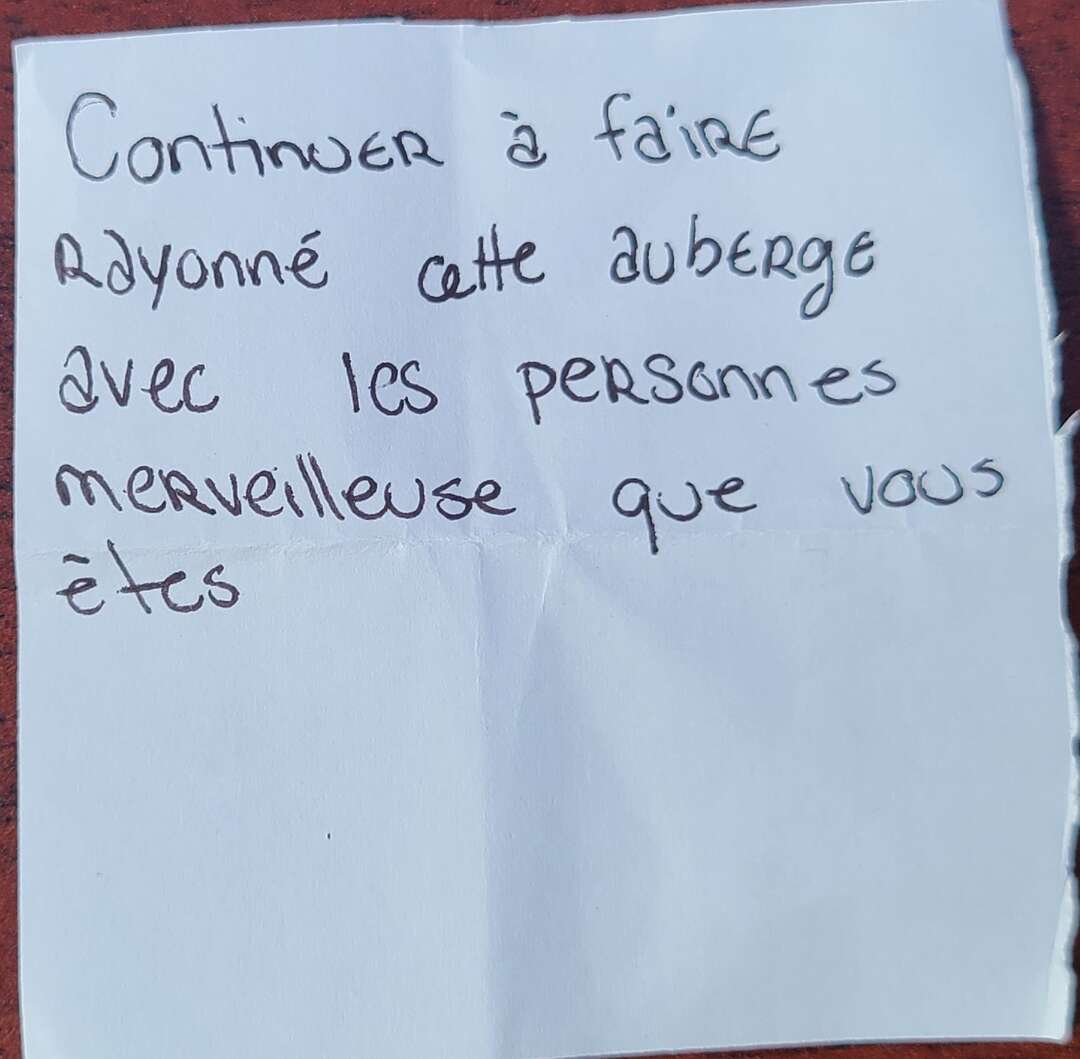 Continuer à faire
rayonné cette auberge
avec les personnes
merveilleuse que vous
êtes